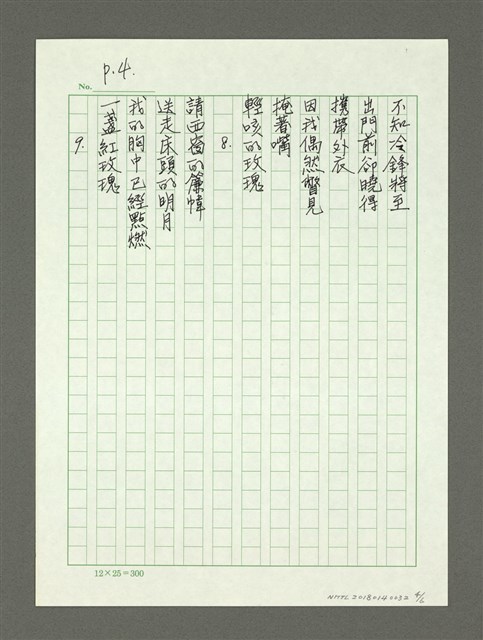 p.4.
No.
不知冷鋒將至
出門前卻曉得
攜帶外衣
因我偶然瞥見
掩著嘴
輕咳的玫瑰
8.
請西窗的簾幃
送走床頭的明月
我的胸中已經點燃
一盞紅玫瑰
9.
12×25=300
NMTL20180140032 4/6